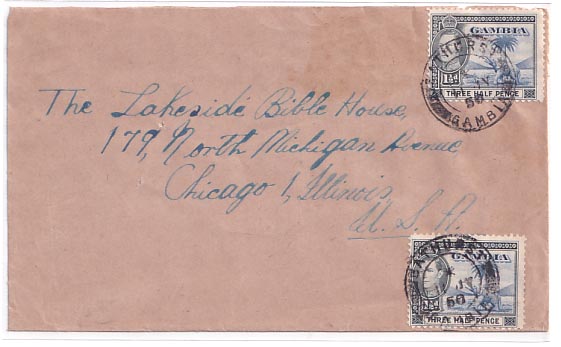 GAMBIA
1½
THREE HALF PENCE
BATHURST
JY
50
GAMBIA
The Lakeside Bible House,
179, North Michigan Avenue
Chicago 1, Illinois,
U. S. A.
GAMBIA
THREE HALF PENCE
BATHURST
JY
50